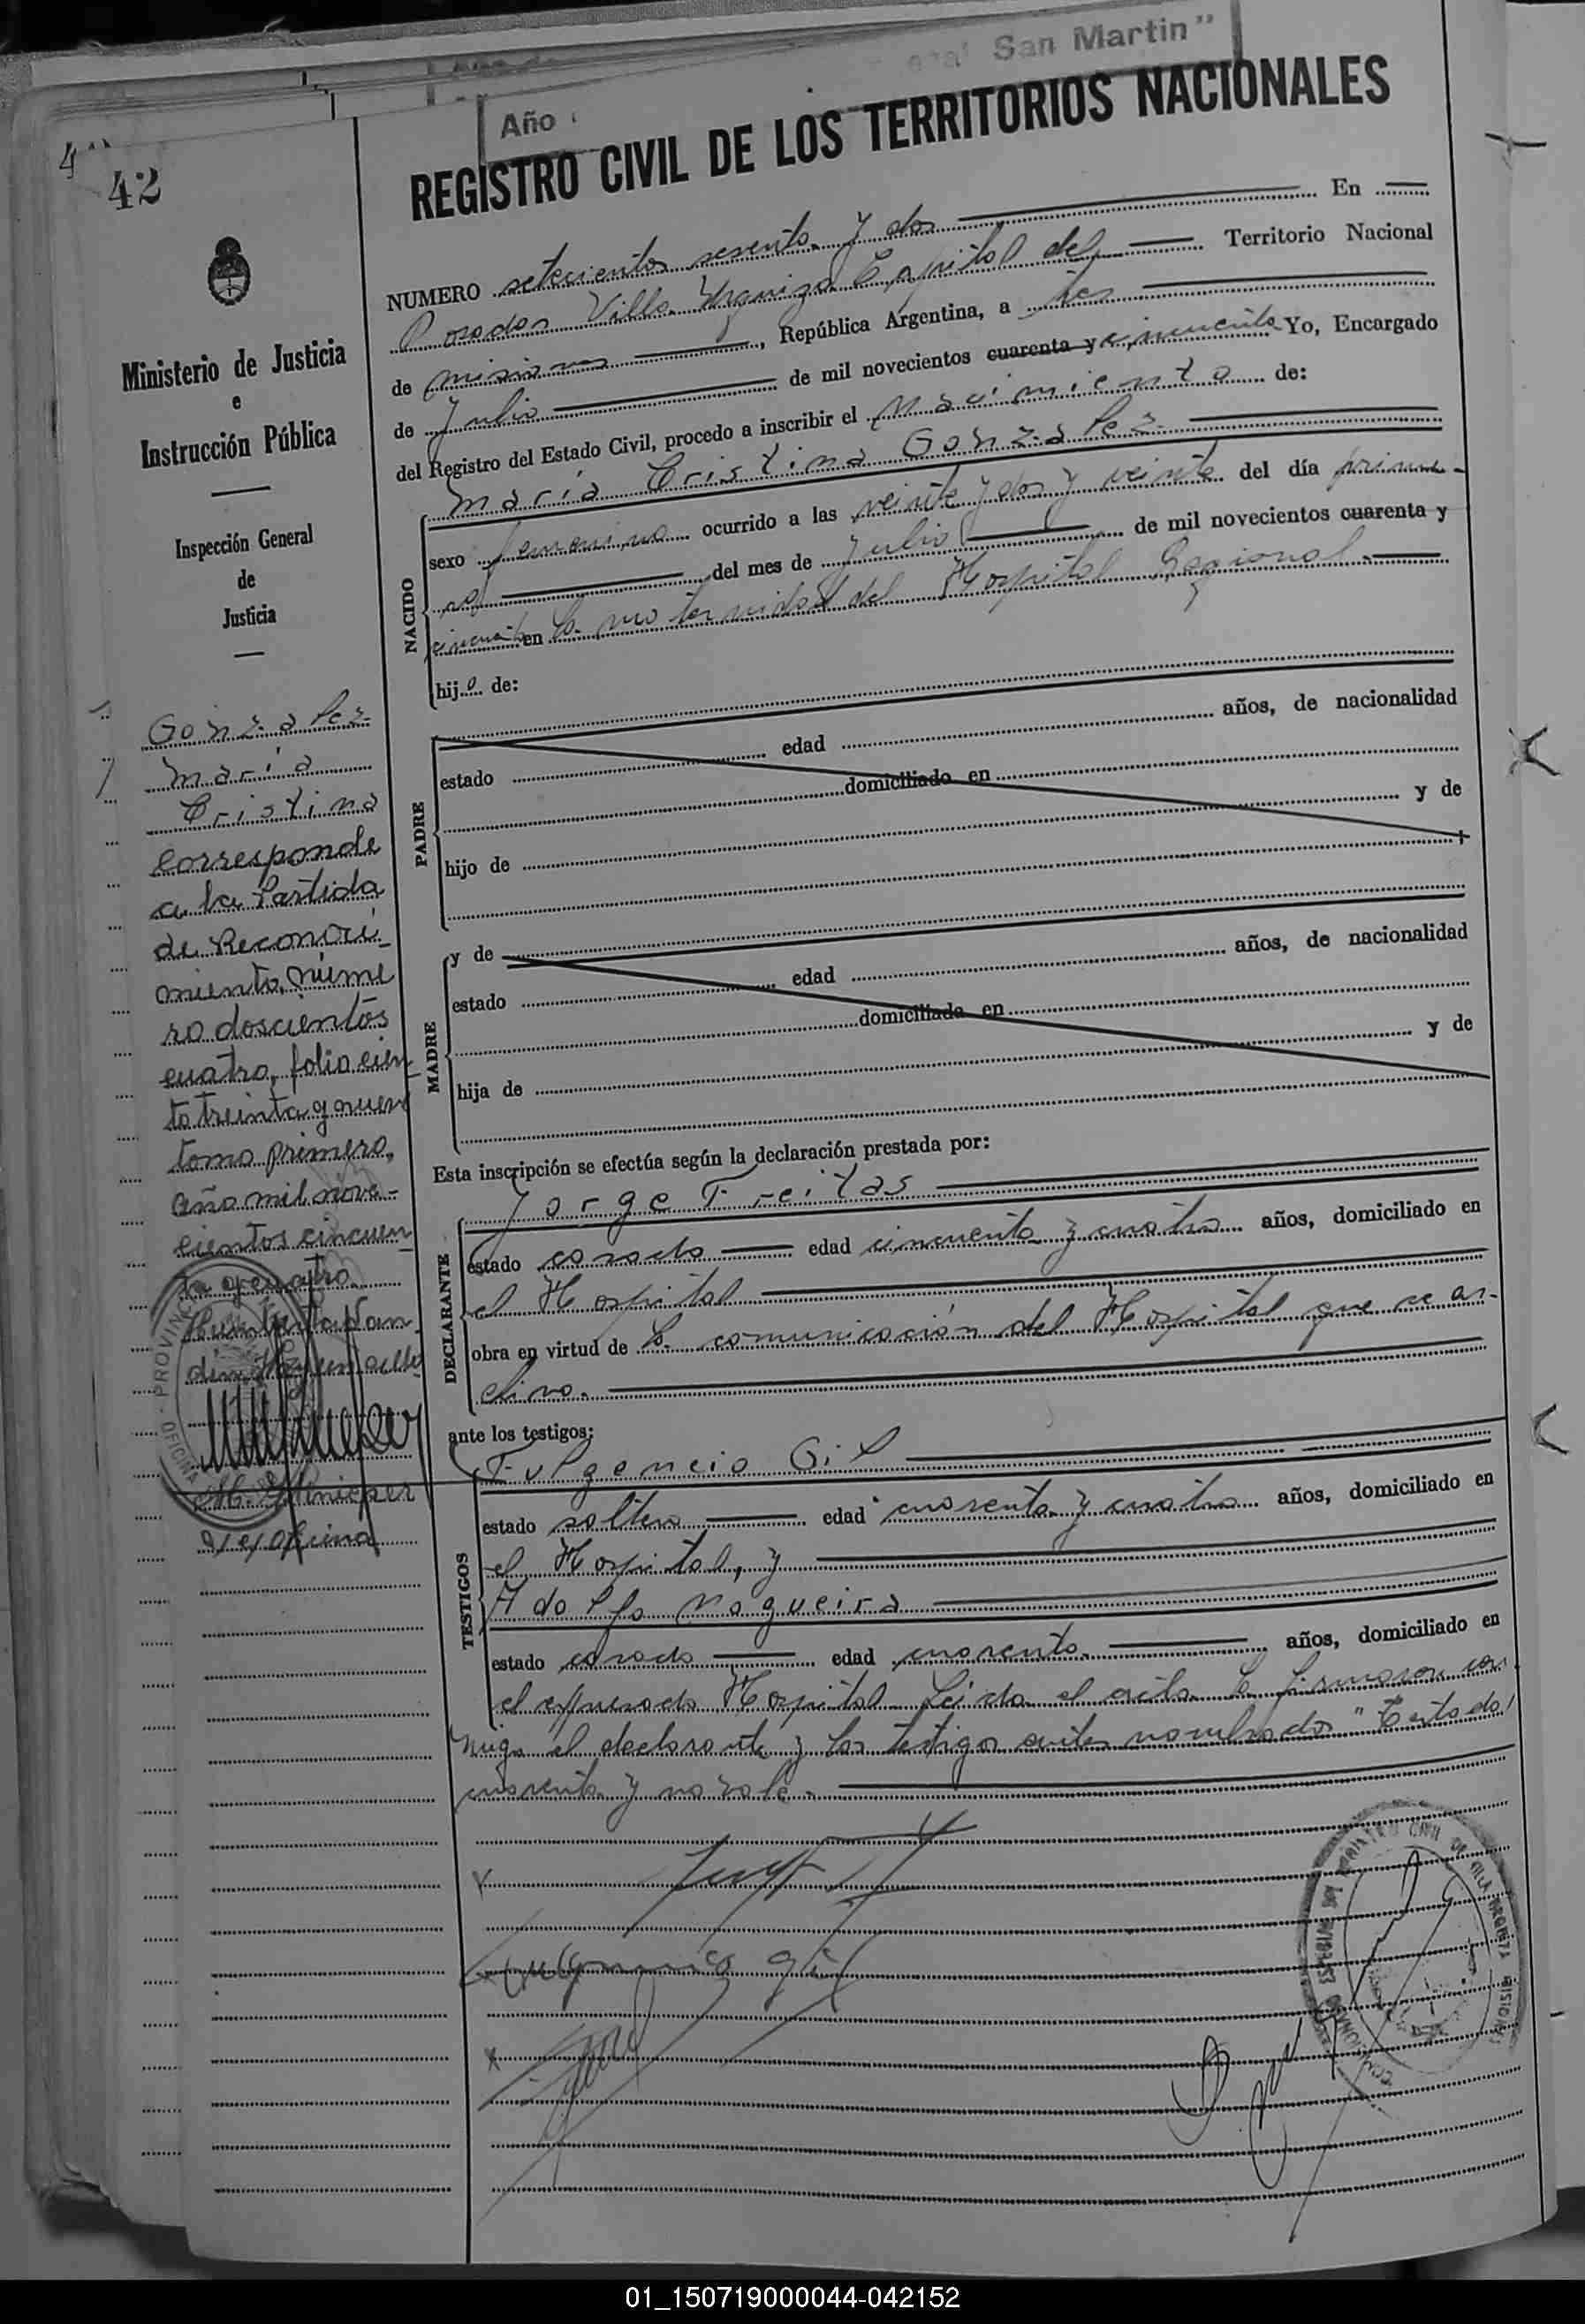 "Año del ... General San Martin"
REGISTRO CIVIL DE LOS TERRITORIOS NACIONALES
42
Ministerio de Justicia
e
Instrucción Pública
Inspección General
de
Justicia
NUMERO setecientos sesenta y dos En
Posadas Villa Urquiza Capital del Territorio Nacional
de misiones, República Argentina, a tres
de Julio de mil novecientos cuarenta y cincuenta Yo, Encargado
del Registro del Estado Civil, procedo a inscribir el nacimiento de:
NACIDO
María Cristina Gonzalez
sexo femenino ocurrido a las veinte y dos y veinte del día prime-
ro del mes de Julio de mil novecientos cuarenta y
cincuenta en la maternidad del Hospital Regional.
hija de:
PADRE
estado edad años, de nacionalidad
domiciliado en
hijo de y de
MADRE
y de
estado edad años, de nacionalidad
domiciliada en
hija de y de
Esta inscripción se efectúa según la declaración prestada por:
DECLARANTE
Jorge Freitas
estado casado edad cincuenta y cuatro años, domiciliado en
el Hospital
obra en virtud de la comunicación del Hospital que se ar-
chiva.
ante los testigos:
TESTIGOS
Fulgencio Gil
estado soltero edad cuarenta y cuatro años, domiciliado en
el Hospital, y
Adolfo Nogueira
estado casado edad cuarenta años, domiciliado en
el expresado Hospital Leida el acta la firmaron con
migo el declarante y los testigos antes nombrados "Testado"
cuarenta y no vale.
Fulgencio Gil
Gonzalez
María
Cristina
Corresponde
a la Partida
de Reconoci-
miento, núme
ro doscientos
cuatro, folio cien
to treinta y nueve
tomo primero,
año mil nove-
cientos cincuen
ta y cuatro.
PROVINCIA
OFICINA
REGISTRO CIVIL DE VILLA URQUIZA MISIONES
01_150719000044-042152